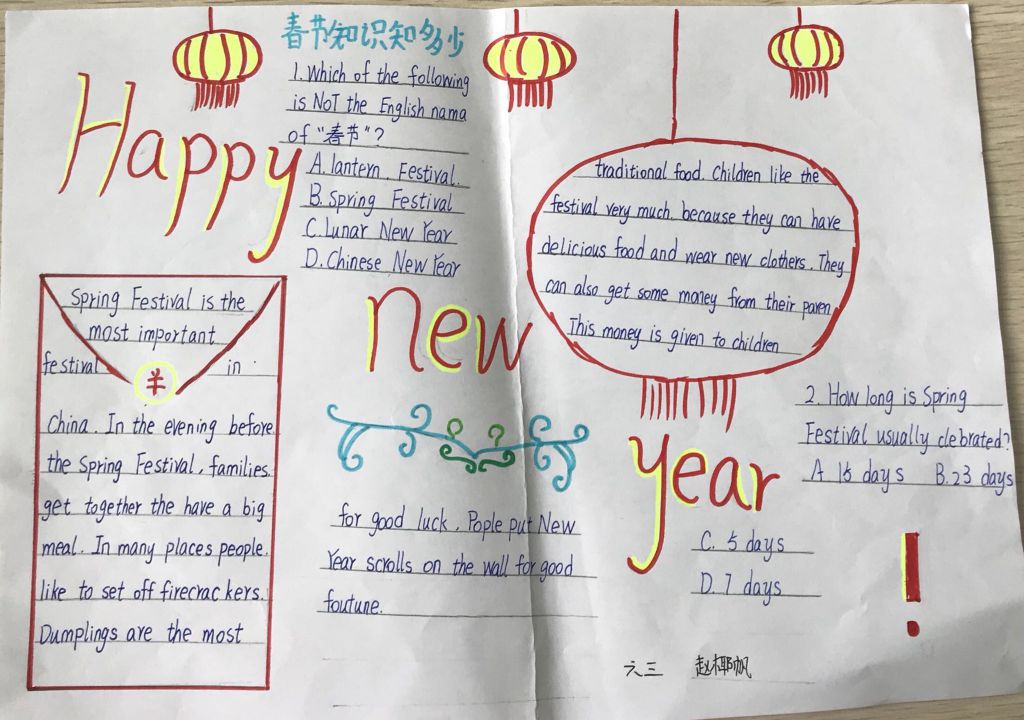 春节知识知多少
1. Which of the following
is NOT the English nama
of "春节"?
A. lantern Festival.
B. Spring Festival
C. Lunar New Year
D. Chinese New Year
Happy
new
year
!
Spring Festival is the
most important
festival in
羊
China. In the evening before
the Spring Festival, families
get together the have a big
meal. In many places people
like to set off firecrackers.
Dumplings are the most
traditional food. Children like the
festival very much. because they can have
delicious food and wear new clothers. They
can also get some money from their paren
This money is given to children
for good luck. Pople put New
Year scrolls on the wall for good
foutune.
2. How long is Spring
Festival usually clebrated?
A 15 days B. 23 days
C. 5 days
D. 7 days
六三 赵椰帆